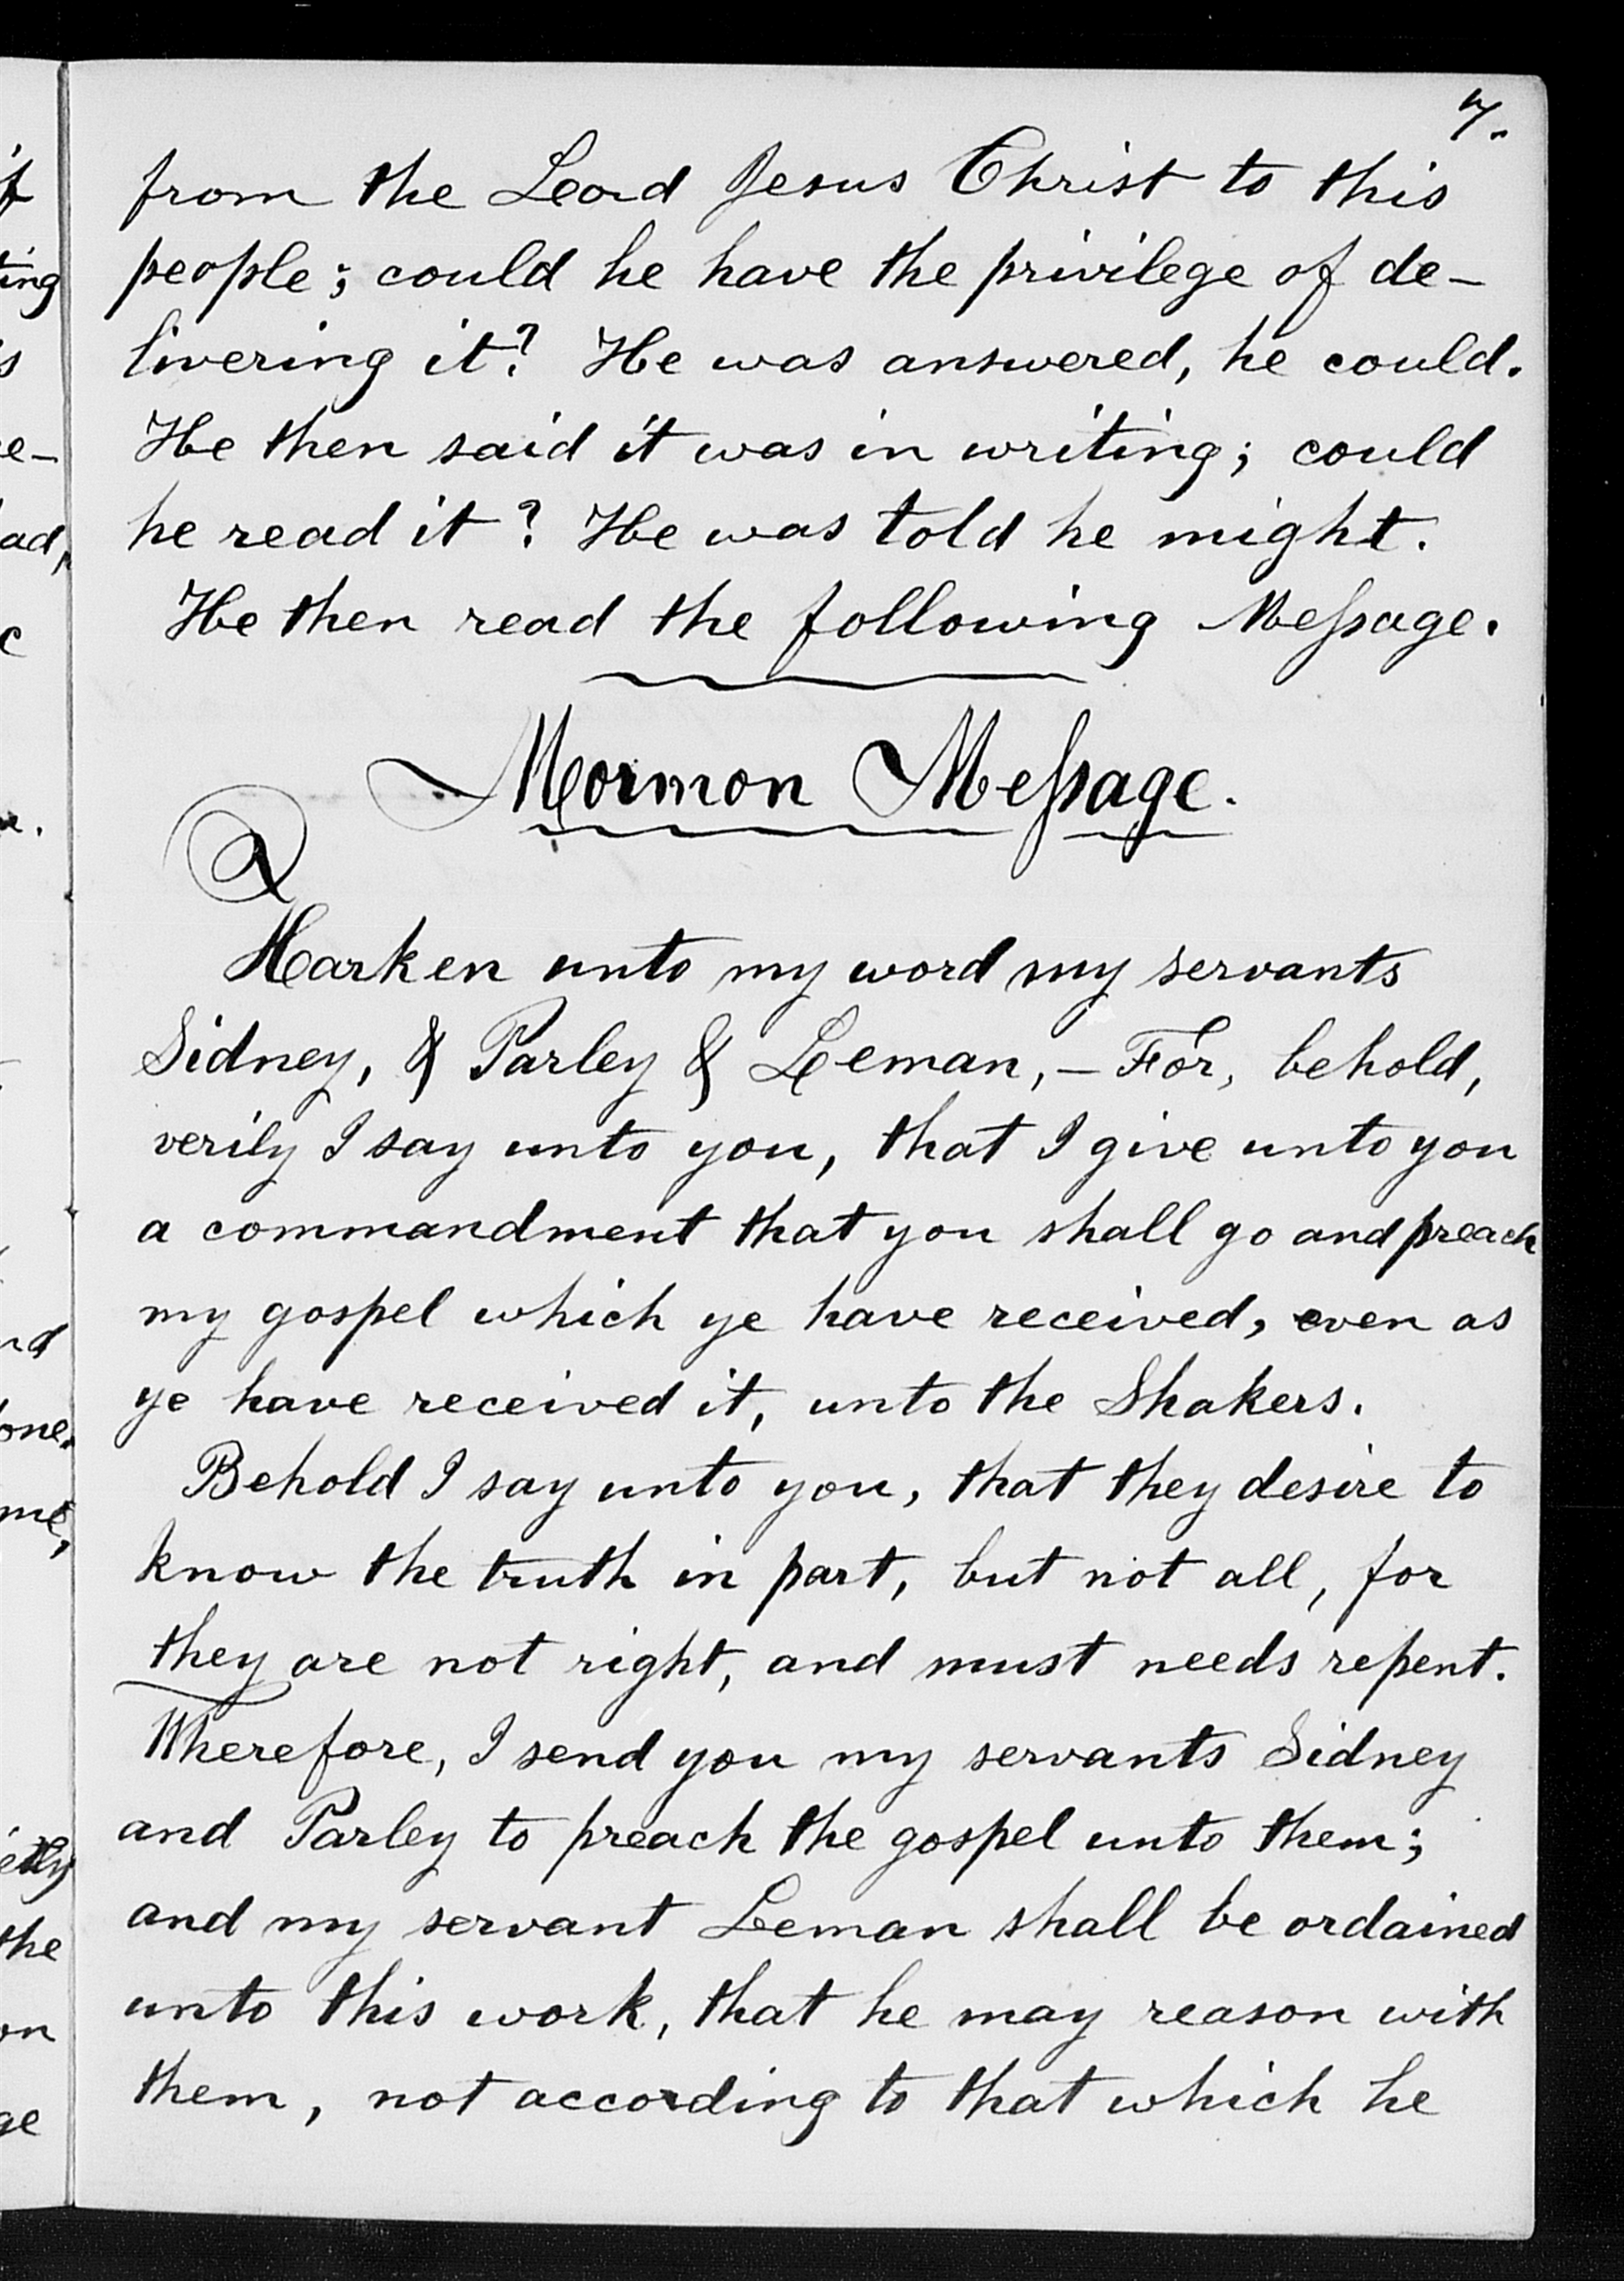 7.
from the Lord Jesus Christ to this
people; could he have the privilege of de-
livering it? He was answered, he could.
He then said it was in writing; could
he read it? He was told he might.
He then read the following Meſsage.
Mormon Meſsage.
Harken unto my word my servants
Sidney, & Parley & Leman, – For, behold,
verily I say unto you, that I give unto you
a commandment that you shall go and preach
my gospel which ye have received, even as
ye have received it, unto the Shakers.
Behold I say unto you, that they desire to
know the truth in part, but not all, for
they are not right, and must needs repent.
Wherefore, I send you my servants Sidney
and Parley to preach the gospel unto them;
and my servant Leman shall be ordained
unto this work, that he may reason with
them, not according to that which he